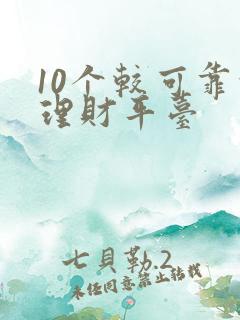 10个较可靠
理財平臺
七貝勒.2
未经同意禁止转载